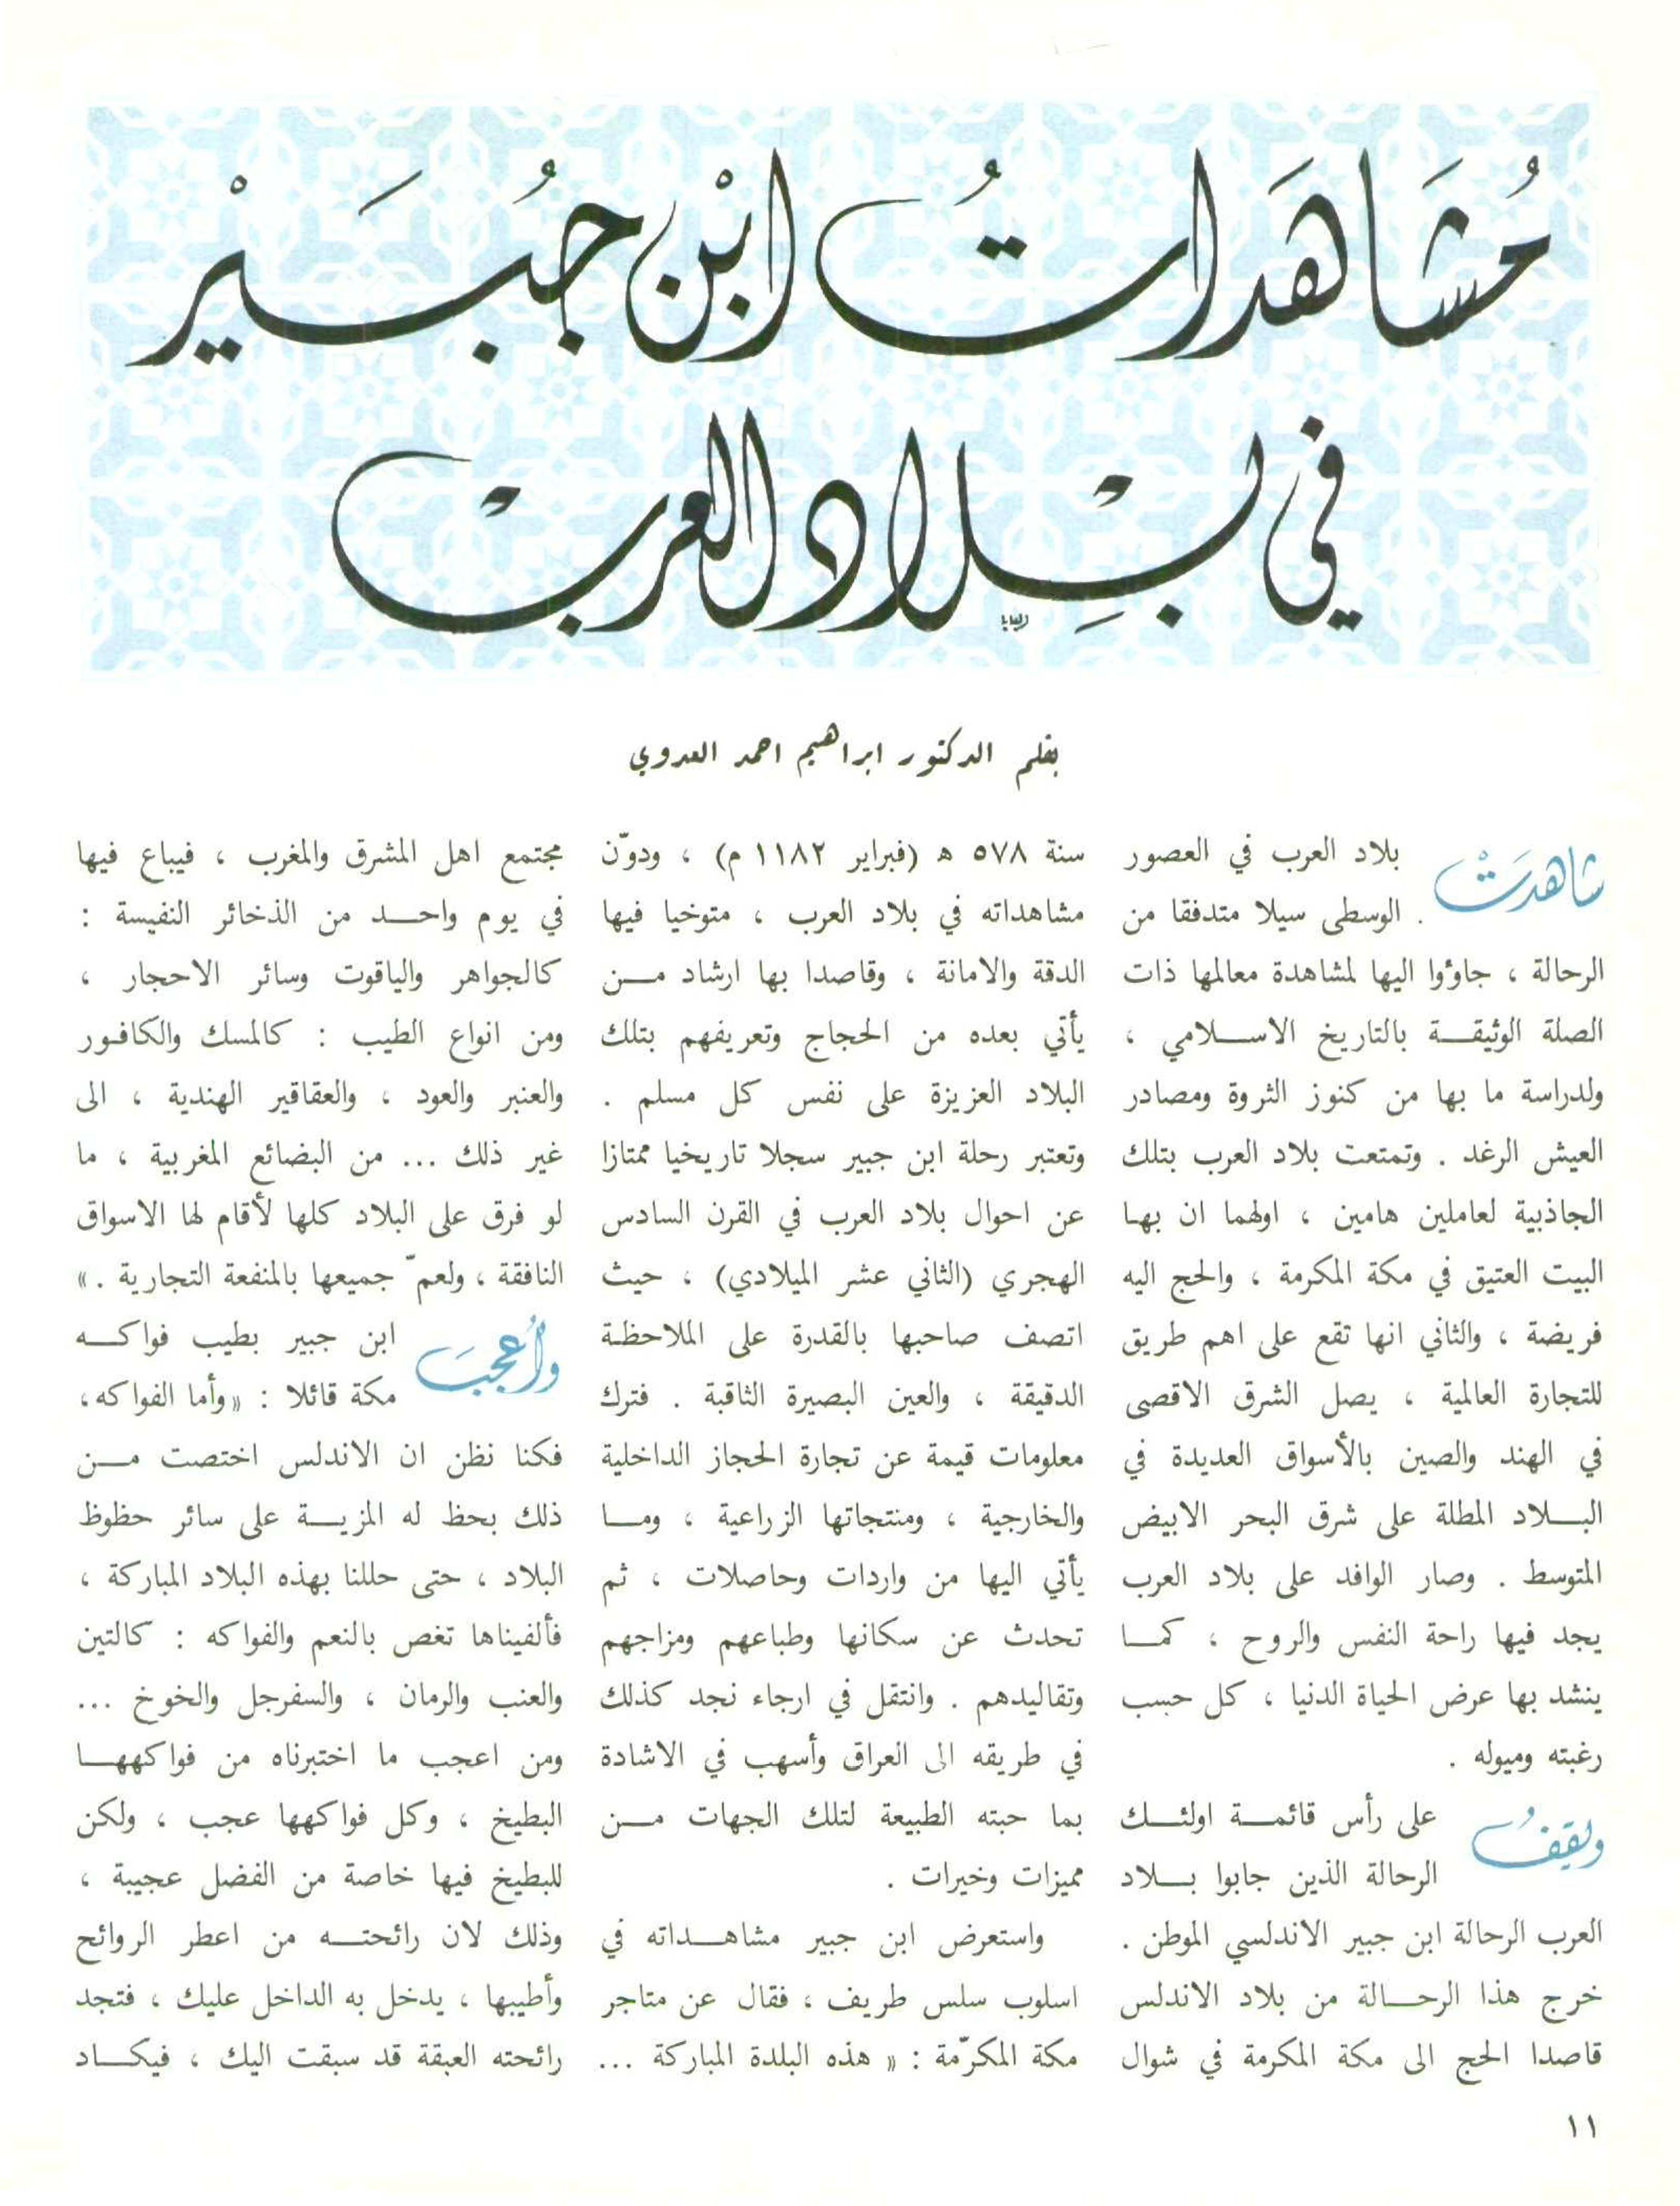 مُشَاهَدَاتُ ابْن جُبَيْر
في بِلَاد العَرب
بقلم الدكتور ابراهيم احمد العدوي
شاهدَتْ بلاد العرب في العصور
الوسطى سيلا متدفقا من
الرحالة ، جاؤوا اليها لمشاهدة معالمها ذات
الصلة الوثيقة بالتاريخ الاسلامي ،
ولدراسة ما بها من كنوز الثروة ومصادر
العيش الرغد . وتمتعت بلاد العرب بتلك
الجاذبية لعاملين هامين ، اولهما ان بها
البيت العتيق في مكة المكرمة ، والحج اليه
فريضة ، والثاني انها تقع على اهم طريق
للتجارة العالمية ، يصل الشرق الاقصى
في الهند والصين بالأسواق العديدة في
البلاد المطلة على شرق البحر الابيض
المتوسط . وصار الوافد على بلاد العرب
يجد فيها راحة النفس والروح ، كما
ينشد بها عرض الحياة الدنيا ، كل حسب
رغبته وميوله .
ويقفُ على رأس قائمة اولئك
الرحالة الذين جابوا بلاد
العرب الرحالة ابن جبير الاندلسي الموطن .
خرج هذا الرحالة من بلاد الاندلس
قاصدا الحج الى مكة المكرمة في شوال
سنة ٥٧٨ ه (فبراير ١١٨٢ م) ، ودوّن
مشاهداته في بلاد العرب ، متوخيا فيها
الدقة والامانة ، وقاصدا بها ارشاد من
يأتي بعده من الحجاج وتعريفهم بتلك
البلاد العزيزة على نفس كل مسلم .
وتعتبر رحلة ابن جبير سجلا تاريخيا ممتازا
عن احوال بلاد العرب في القرن السادس
الهجري (الثاني عشر الميلادي) ، حيث
اتصف صاحبها بالقدرة على الملاحظة
الدقيقة ، والعين البصيرة الثاقبة . فترك
معلومات قيمة عن تجارة الحجاز الداخلية
والخارجية ، ومنتجاتها الزراعية ، وما
يأتي اليها من واردات وحاصلات ، ثم
تحدث عن سكانها وطباعهم ومزاجهم
وتقاليدهم . وانتقل في ارجاء نجد كذلك
في طريقه الى العراق وأسهب في الاشادة
بما حبته الطبيعة لتلك الجهات من
مميزات وخيرات .
واستعرض ابن جبير مشاهداته في
اسلوب سلس طريف ، فقال عن متاجر
مكة المكرّمة : « هذه البلدة المباركة ...
مجتمع اهل المشرق والمغرب ، فيباع فيها
في يوم واحد من الذخائر النفيسة :
كالجواهر والياقوت وسائر الاحجار ،
ومن انواع الطيب : كالمسك والكافور
والعنبر والعود ، والعقاقير الهندية ، الى
غير ذلك ... من البضائع المغربية ، ما
لو فرق على البلاد كلها لأقام لها الاسواق
النافقة ، ولعمّ جميعها بالمنفعة التجارية . »
وأُعجبَ ابن جبير بطيب فواكه
مكة قائلا : « وأما الفواكه ،
فكنا نظن ان الاندلس اختصت من
ذلك بحظ له المزية على سائر حظوظ
البلاد ، حتى حللنا بهذه البلاد المباركة ،
فألفيناها تغص بالنعم والفواكه : كالتين
والعنب والرمان ، والسفرجل والخوخ ...
ومن اعجب ما اختبرناه من فواكهها
البطيخ ، وكل فواكهها عجب ، ولكن
للبطيخ فيها خاصة من الفضل عجيبة ،
وذلك لان رائحته من اعطر الروائح
وأطيبها ، يدخل به الداخل عليك ، فتجد
رائحته العبقة قد سبقت اليك ، فيكاد
١١